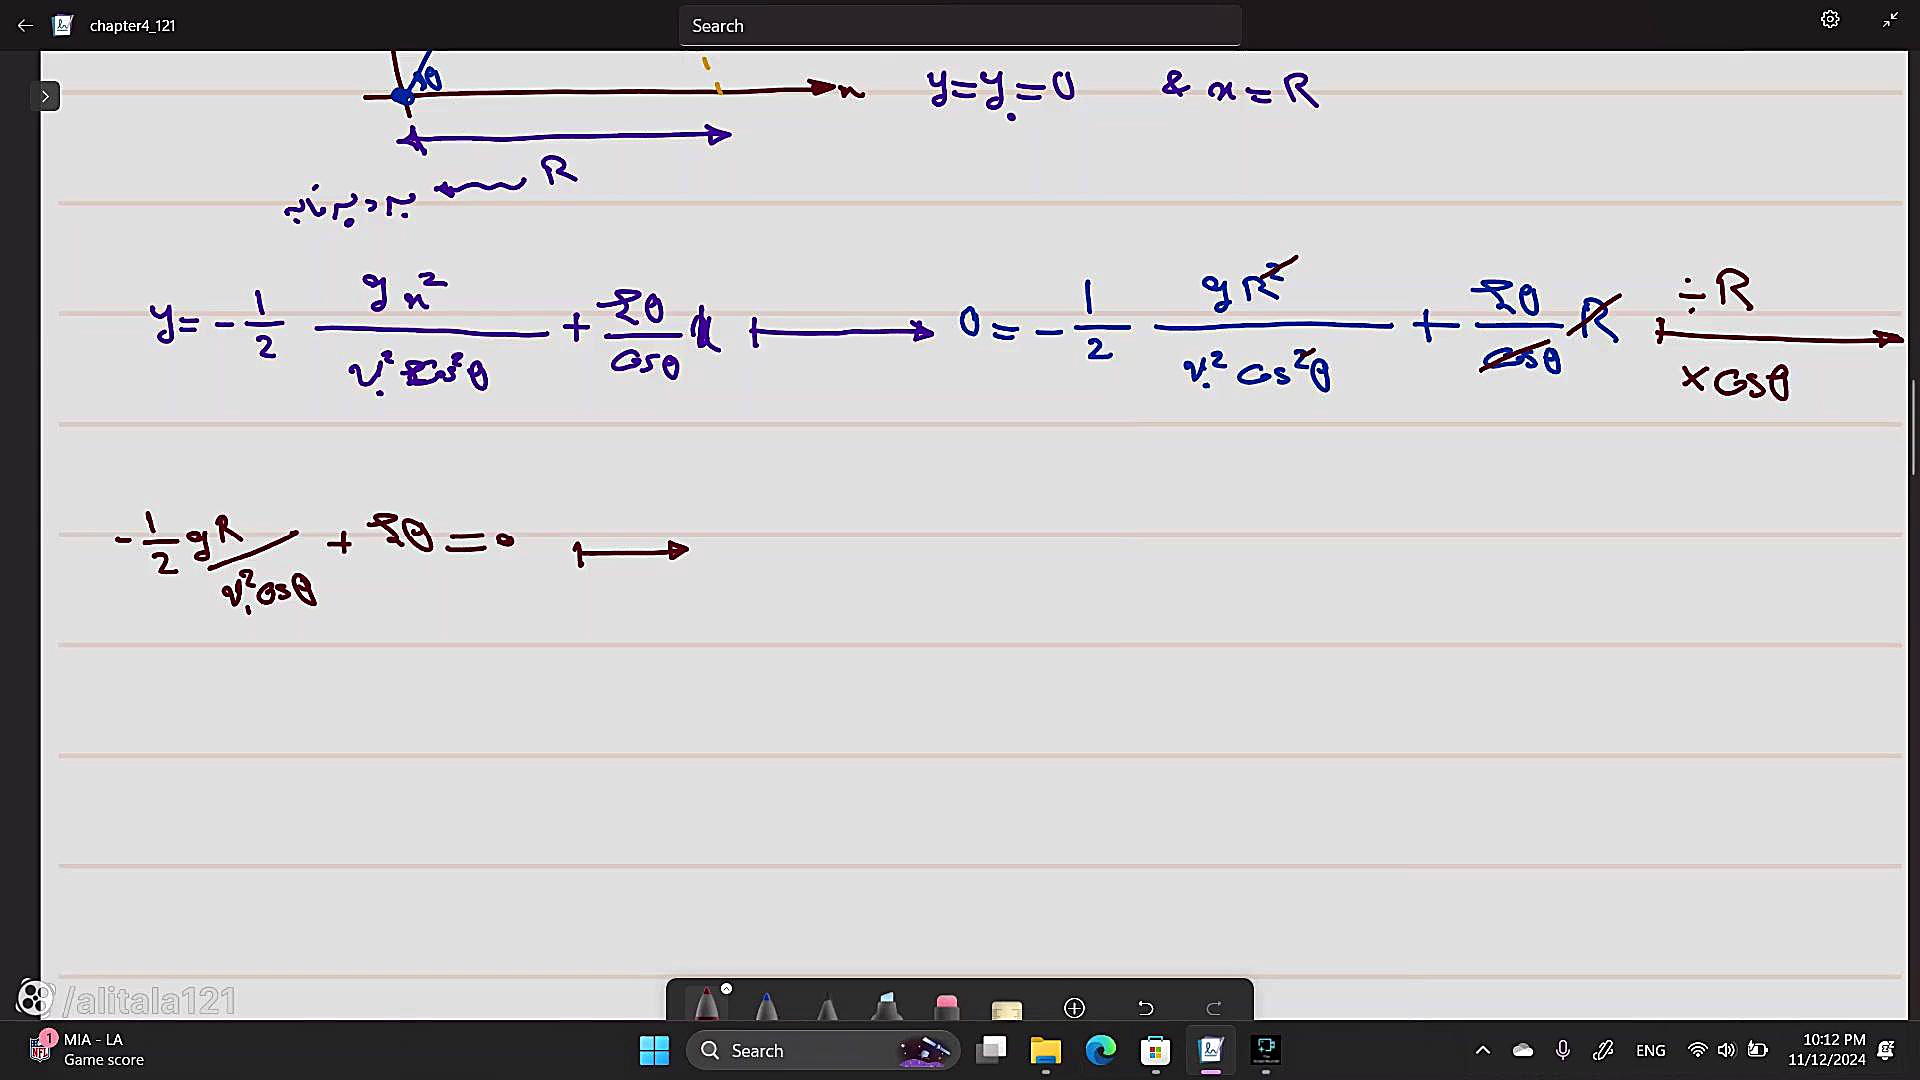 chapter4_121
Search
θ
x
y=y₀=0 & x=R
R
برد پرتابه
y = -1/2 gx²/v₀²cos²θ + sinθ/cosθ x ⟼ 0 = -1/2 gR²/v₀²cos²θ + sinθ/cosθ R ÷R ×cosθ
-1/2 gR/v₀²cosθ + sinθ = 0 ⟼
/alitala121
1
MIA - LA
Game score
Search
ENG
10:12 PM
11/12/2024